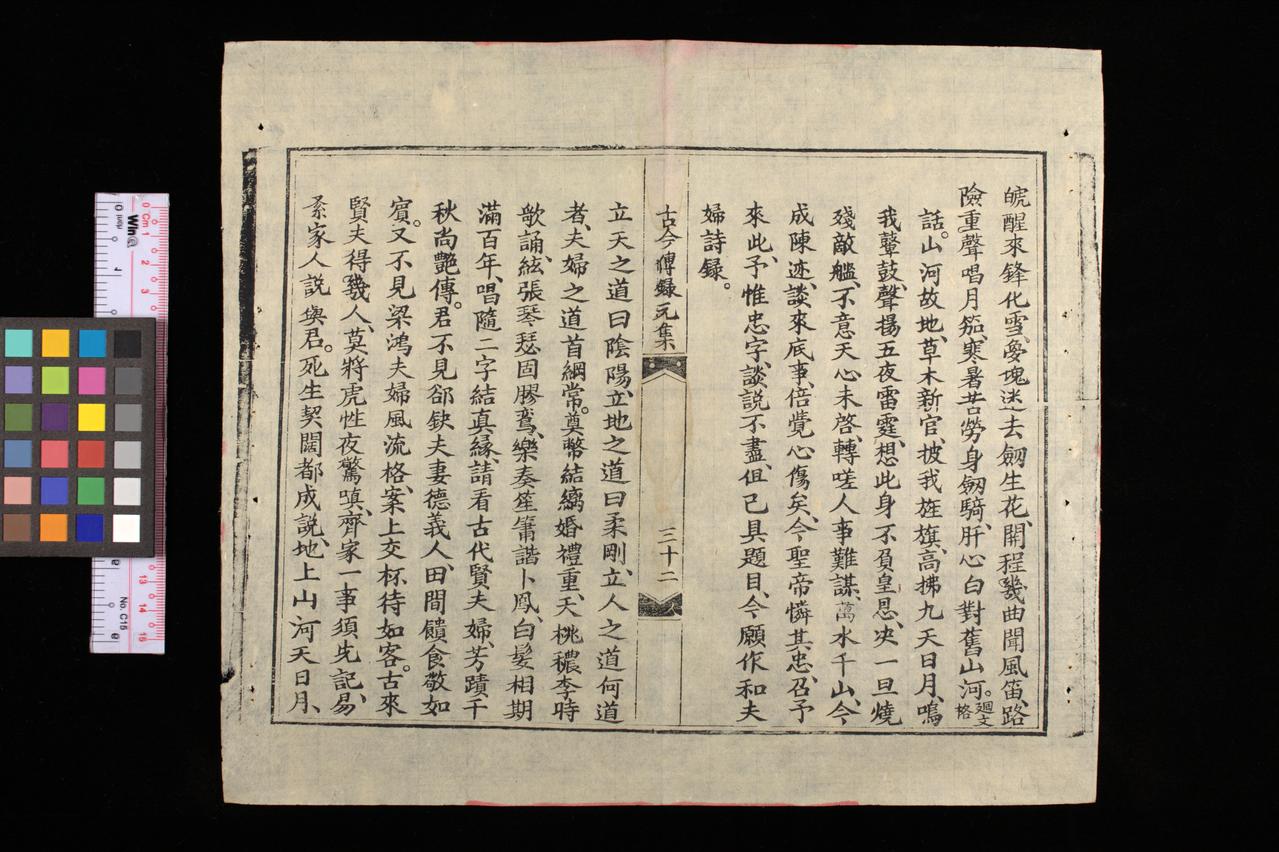 皖醒來鋒化雪、愛塊迷去劒生花、開程幾曲聞風笛、路
險重聲唱月笳、寒暑苦勞身劒騎、肝心白對舊山河。廻文格
話。山河故地、草木新官、披我旌旗、高拂九天日月、鳴
我鼙鼓、聲揚五夜雷霆、想此身不負皇恩、决一旦燒
殘敵艦、不意天心未啓、轉嗟人事難謀、萬水千山、今
成陳迹、談來底事、倍覺心傷矣、今聖帝憐其忠、召予
來此、予惟忠字、談說不盡、但已具題目、今願作和夫
婦詩録。
古今傳録元集
三十二
立天之道曰陰陽、立地之道曰柔剛、立人之道何道
者、夫婦之道首綱常。奠幣結縭婚禮重、夭桃穠李時
歌誦、絃張琴瑟固膠鸞、樂奏笙簫諧卜鳳、白髮相期
滿百年、唱隨二字結真縁、請看古代賢夫婦、芳蹟千
秋尚艷傳。君不見郤缺夫妻德義人、田間饋食敬如
賓。又不見梁鴻夫婦風流格、案上交杯待如客。古來
賢夫得幾人、莫將虎性夜驚嗔、齊家一事須先記、易
系家人説與君。死生契闊都成説、地上山河天日月、
No. C15
Cm